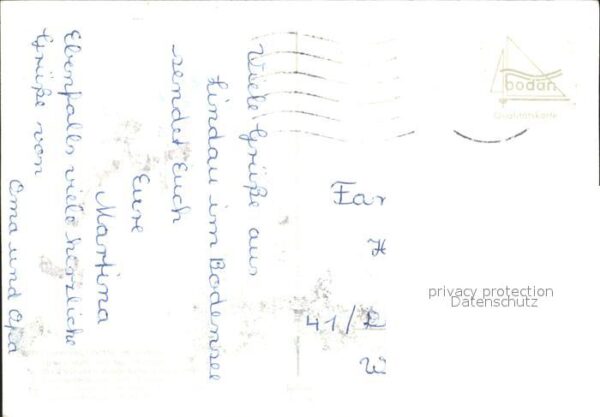 Viele Grüße aus
Lindau im Bodensee
sendet Euch
Eure
Martina
Ebenfalls viele herzliche
Grüße von
Oma und Opa
bodan
Qualitätskarte
Far
41/2
W
privacy protection
Datenschutz